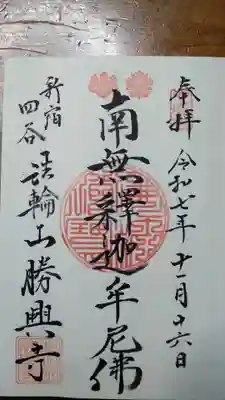 奉拝 令和七年十一月十六日
南無釋迦牟尼佛
新宿
四谷
法輪山勝興寺